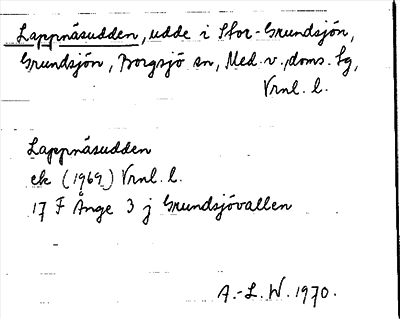 Lappnäsudden, udde i Stor-Grundsjön,
Grundsjön, Borgsjö sn, Med.v. doms. Lg,
Vrnl. l.
Lappnäsudden
ek (1969) Vrnl. l.
17 F Ånge 3 j Grundsjövallen
A.-L.W. 1970.